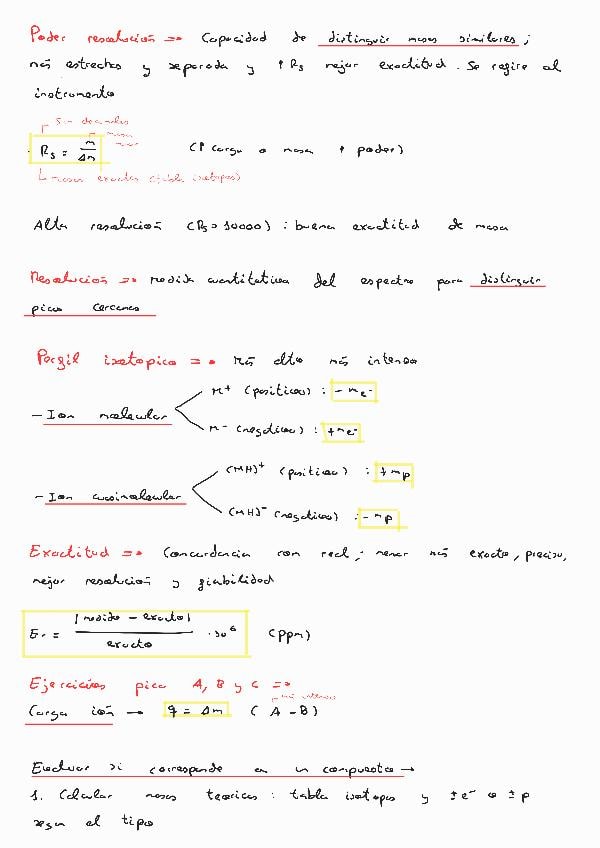 Poder resolución => Capacidad de distinguir masas similares;
más estrechas y separada y ↑Rs mejor exactitud. Se refire al
instrumento
Sin decimales
masa
Rs = m/Δm (↑ carga o masa ↑ poder)
masas exactas (tabla isotopos)
Alta resolución (Rs > 10000) : buena exactitud de masa
Resolución => medida cuantitativa del espectro para distinguir
picos cercanos
Perfil isotopico => Más alto más intenso
M+ (positivo) : -me-
- Ion molecular
M- (negativo) : +me-
(MH)+ (positivo) : +mp
- Ion cuasimolecular
(MH)- (negativo) : -mp
Exactitud => Concordancia con real; menor más exacto, preciso,
mejor resolución y fiabilidad
Er = |medido - exacto| / exacto · 10^6 (ppm)
Ejercicios pico A, B y C =>
más intenso
Carga ión → q = Δm (A-B)
Evaluar si corresponde en un compuesto →
1. Calcular masas teoricas : tabla isotopos y ±e- o ±p
segun el tipo